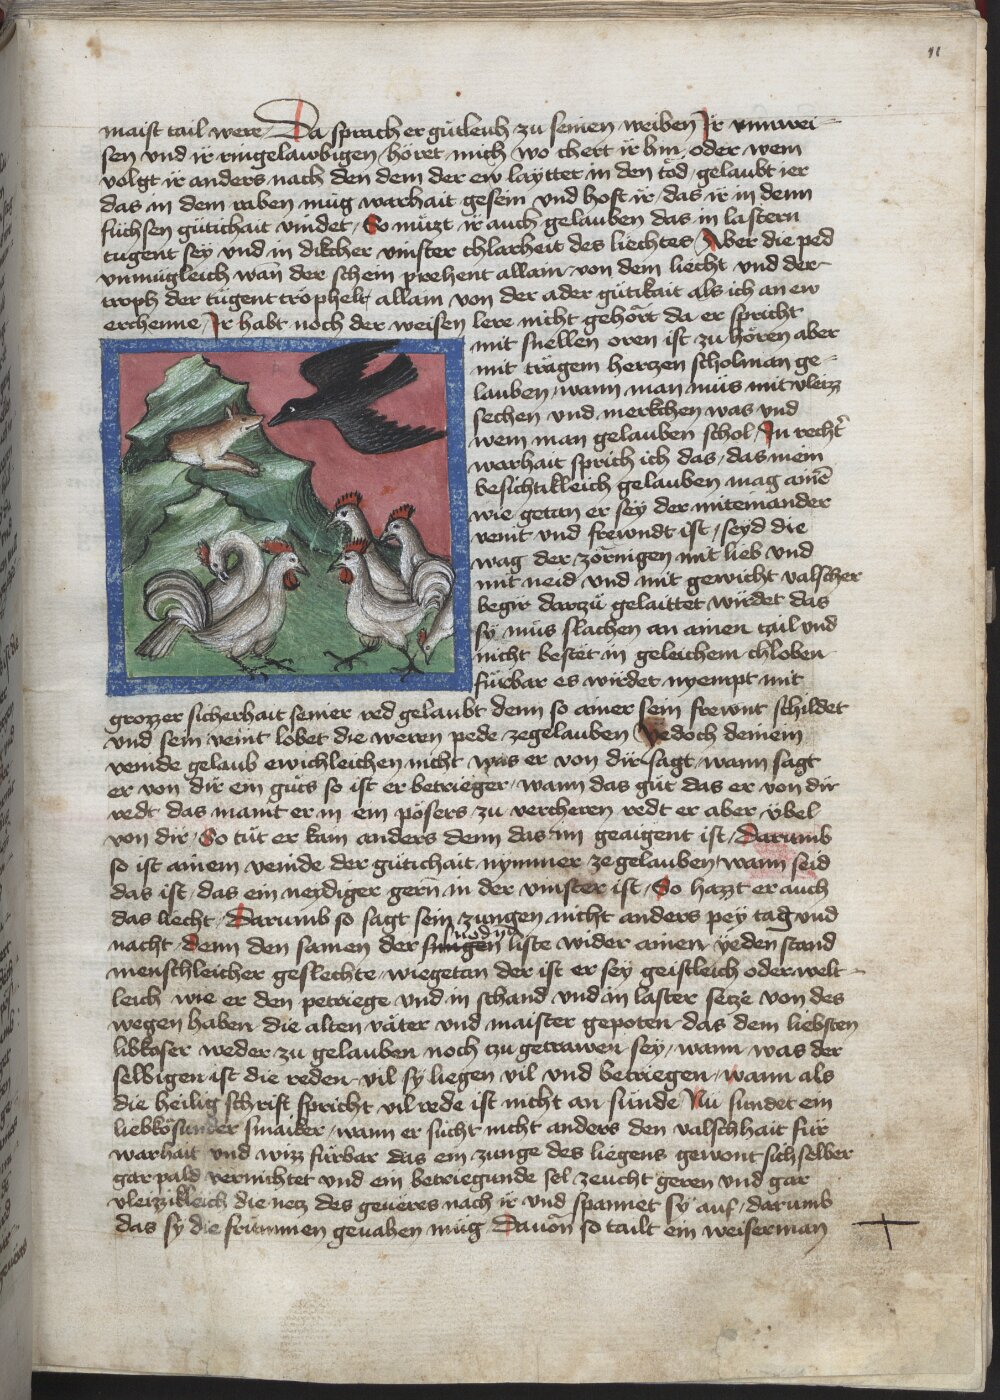 11
maist tail were Da sprach er gütleich zu seinen weiben Ir vnwei-
sen vnd ir ringelawbigen höret mich wo chert ir hin oder wem
volgt ir anders nach den dem der ew laytter in den tod gelaubt ier
das in dem raben müg warhait gesein vnd hoft ir das ir in dem
füchsen gütichait vindet So müzt ir auch gelauben das in lastern
tugent sey vnd in dikcher vinster chlarheit des liechtes Aber die ped
vnmügleich wan der schein prehent allain von dem liecht vnd der
troph der tugent trophelt allain von der ader gütikait als ich an ew
erchenne Ir habt noch der weisen lere nicht gehört da er spricht
mit snellen oren ist zu hören aber
mit trägem hertzen schol man ge-
lauben wann man müs mit vleizz
sechen vnd merkchen was vnd
wem man gelauben schol In rechter
warhait sprich ich das das mein
besichtikleich gelauben mag ainē
wie getan er sey der miteinander
veint vnd frewndt ist seyd die
wag der zörnigen mit lieb vnd
mit neid vnd mit gewicht valscher
begir darzü gelaittet würdet das
sy müs slachen an ainen tail vnd
nicht bestet in geleichem chloben
fürbar es wirdet nyempt mit
grozzer sicherhait seiner red gelaubt denn so ainer sein frewnt schildet
vnd sein veint lobet die weren pede zegelauben Yedoch deinem
veinde gelaub ewichleichen nicht was er von dir sagt wann sagt
er von dir ein güts so ist er betrieger wann das güt das er von dir
redt das maint er in ein pösers zu vercheren redt er aber vbel
von dir So tüt er kain anders denn das im geaigent ist Darumb
so ist ainem veinde der gütichait nymmer ze gelauben wann seid
das ist das ein neydiger gern in der vinster ist So hazzt er auch
das liecht Darumb so sagt sein zungen nicht anders pey tag vnd
nacht denn den samen der liste wider ainen yeden stand
menschleicher geslechte wiegetan der ist er sey geistleich oder welt-
leich wie er den petriege vnd in schand vnd in laster setze von des
wegen haben die alten väter vnd maister gepoten das dem liebsten
libkoser weder zu gelauben noch tzu getrawen sey wann was der
selbigen ist die reden vil sy liegen vil vnd betriegen wann als
die heilig schrift spricht vil rede ist nicht an sünde Nu sundet ein
liebkösunder smaiker wann er sücht nicht anders den valschhait für
warhait vnd wizz fürbar das ein zunge des liegens gewont sich selber
gar pald vernichtet vnd ein betriegunde sel zeucht geren vnd gar
vleizzikleich die netz des geueres nach ir vnd spannet sy auf darumb
das sy die frummen geuahen müg Dauon so tailt ein weiser man